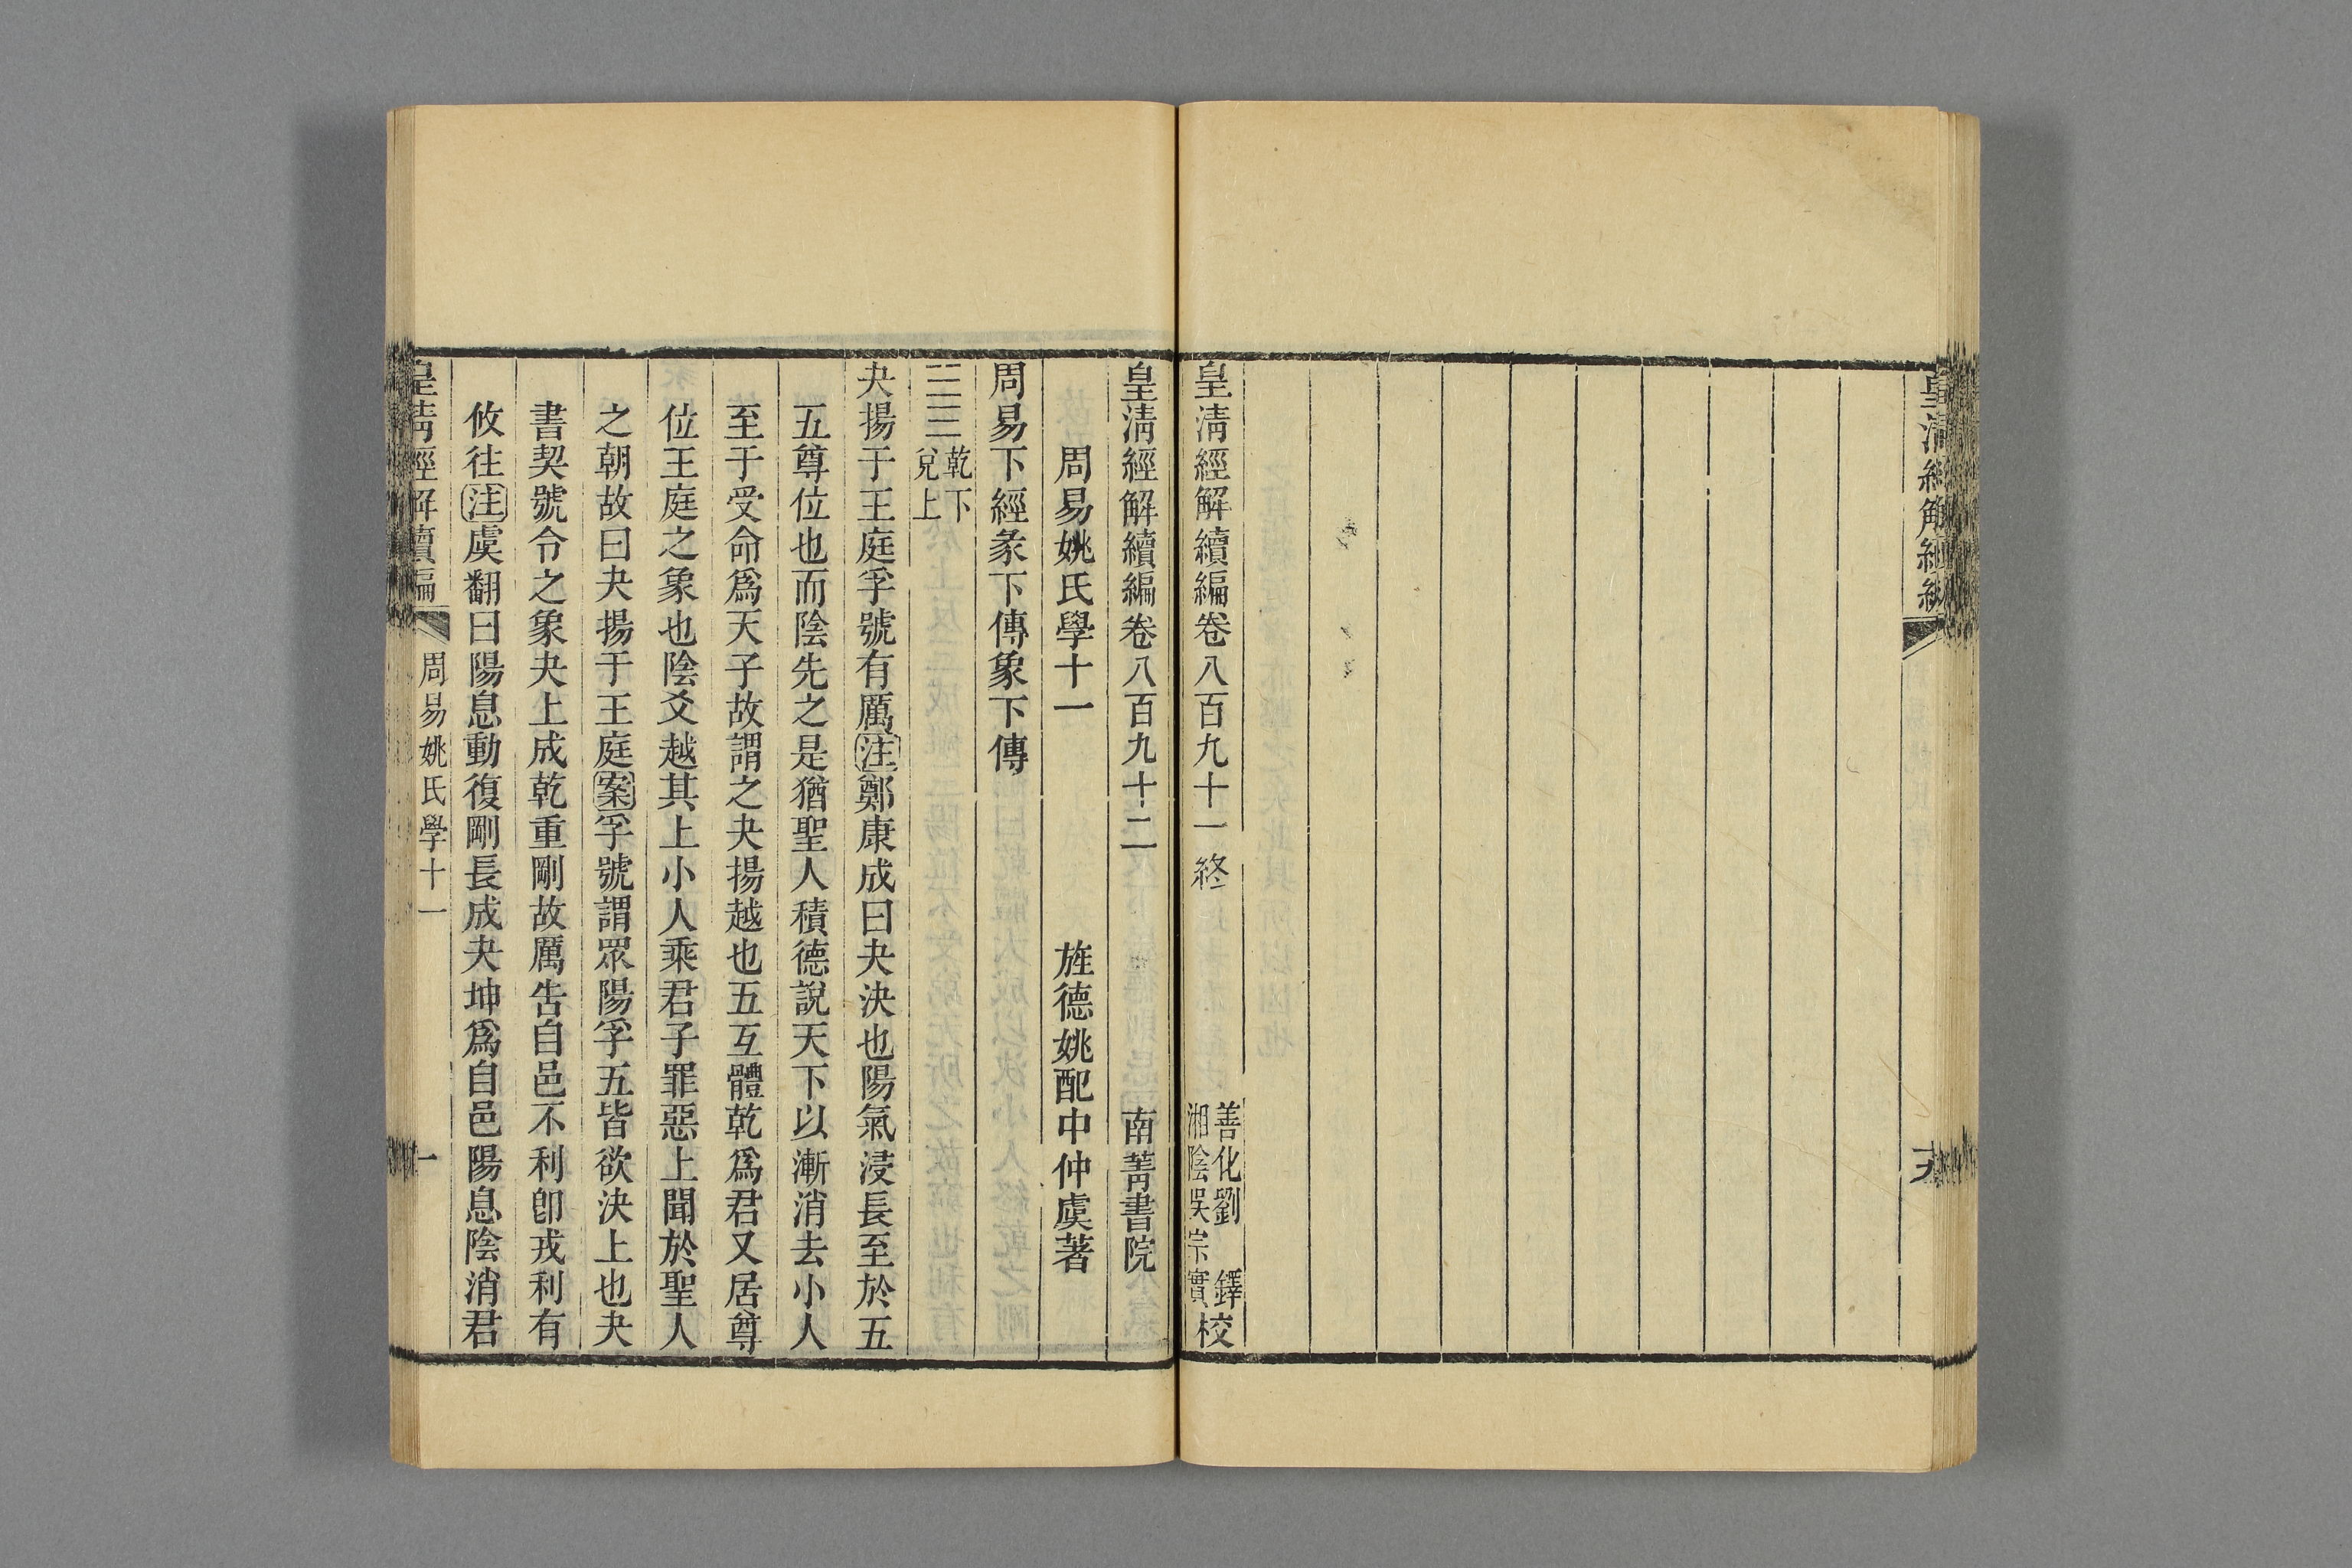 皇清經解續編
皇清經解續編卷八百九十一終
善化劉 鐸
湘陰吳宗實
校
皇清經解續編卷八百九十二 南菁書院
周易姚氏學十一 旌德姚配中仲虞著
周易下經彖下傳象下傳
乾下
兌上
夬揚于王庭孚號有厲注鄭康成曰夬決也陽氣浸長至於五
五尊位也而陰先之是猶聖人積德說天下以漸消去小人
至于受命爲天子故謂之夬揚越也五互體乾爲君又居尊
位王庭之象也陰爻越其上小人乘君子罪惡上聞於聖人
之朝故曰夬揚于王庭案孚號謂眾陽孚五皆欲決上也夬
書契號令之象夬上成乾重剛故厲告自邑不利卽戎利有
攸往注虞翻曰陽息動復剛長成夬坤爲自邑陽息陰消君
皇清經解續編 周易姚氏學十一 一